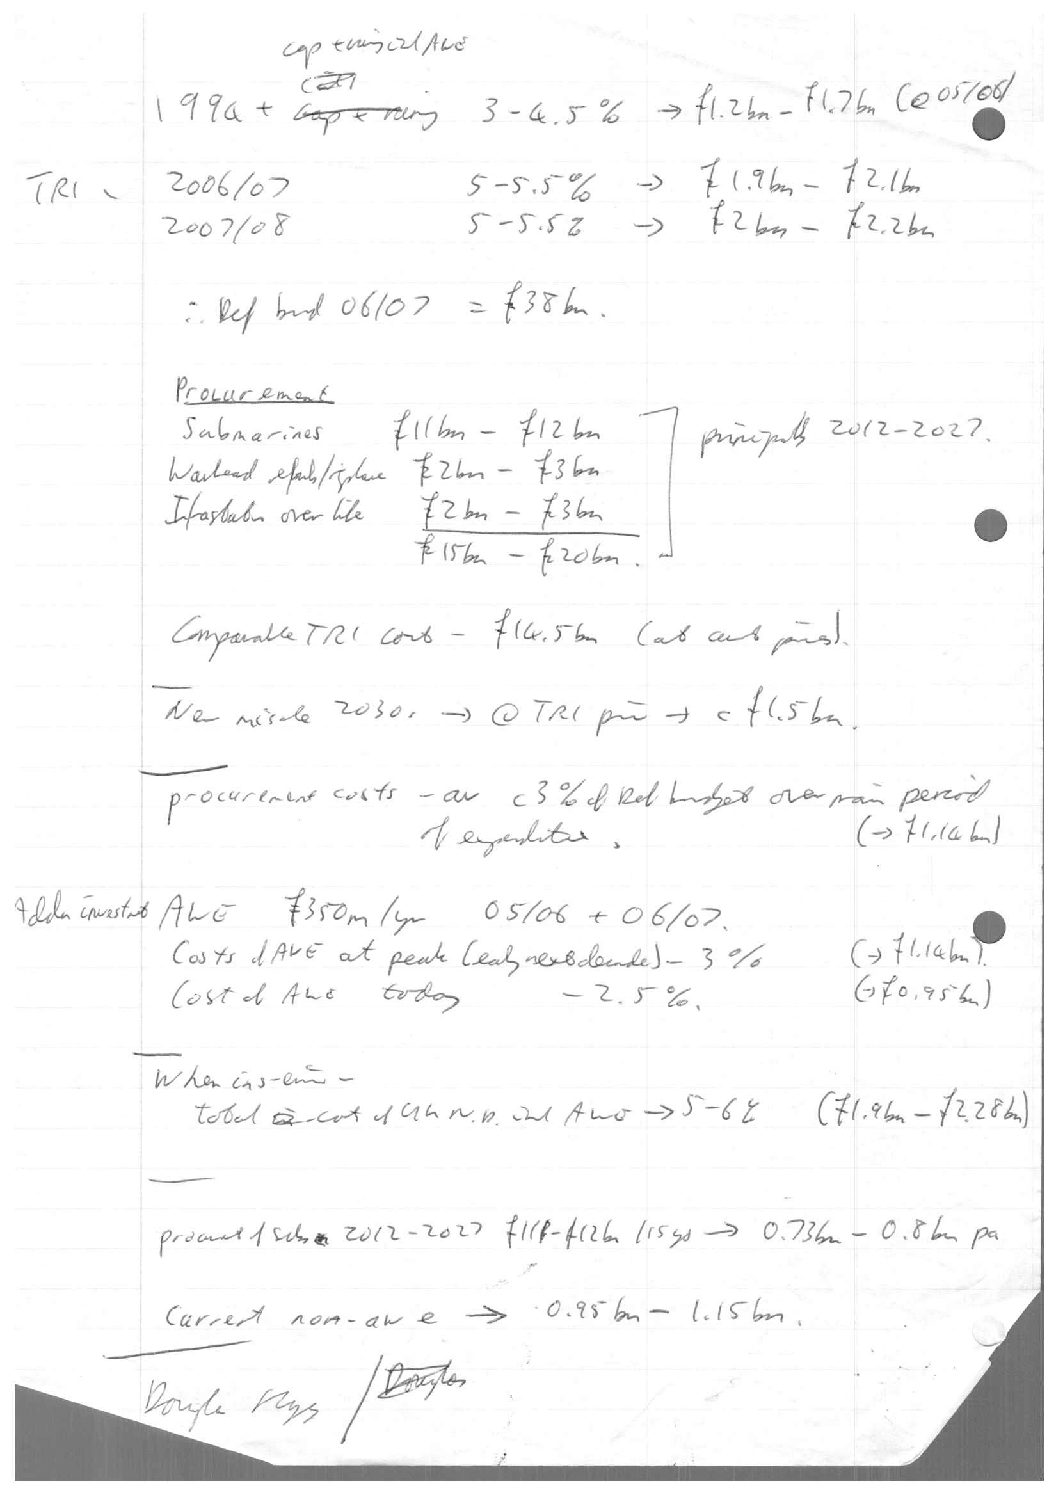 cap + running incl AWE
1994 + cap + running 3-4.5% → £1.2bn - £1.7bn (@ 05/06)
TRI - 2006/07 5-5.5% → £1.9bn - £2.1bn
2007/08 5-5.5% → £2bn - £2.2bn
∴ Def bud 06/07 = £38bn.
Procurement
Submarines £11bn - £12bn
principally 2012-2027.
Warhead refurb/replace £2bn - £3bn
Infrastructure over life £2bn - £3bn
£15bn - £20bn.
Comparable TRI cost - £14.5bn (at curt prices).
New missile 2030s → @ TRI price → c £1.5bn.
procurement costs - av c3% of Def budget over main period
of expenditure. (→ £1.14bn)
Addn investmt AWE £350m/yr 05/06 + 06/07.
Costs of AWE at peak (early next decade) - 3% (→ £1.14bn).
Cost of AWE today - 2.5%. (→ £0.95bn)
When ins-ervice -
total cost of UK N.D. incl AWE → 5-6% (£1.9bn - £2.28bn)
procurement of subs 2012-2027 £11-£12bn /15yrs → 0.73bn - 0.8bn pa
Current non-awe → 0.95bn - 1.15bn.
/ Douglas